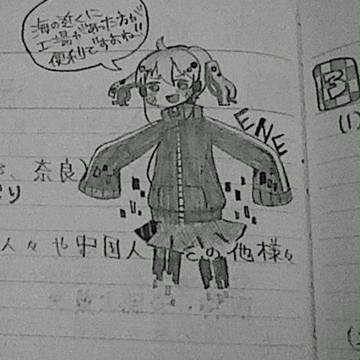 海の近くに
工場があった方が
便利ですよね!!
ENE
3
(1)
、奈良)
り
人々や中国人 その他様々